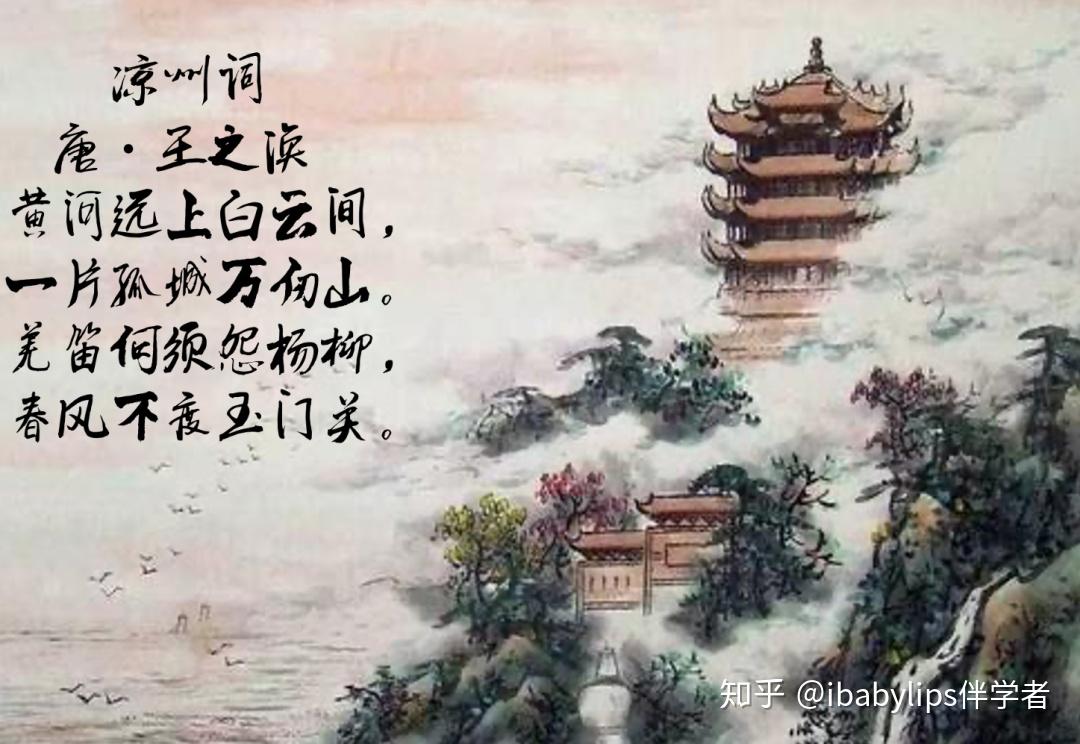 凉州词
唐·王之涣
黄河远上白云间，
一片孤城万仞山。
羌笛何须怨杨柳，
春风不度玉门关。
知乎 @ibabylips伴学者